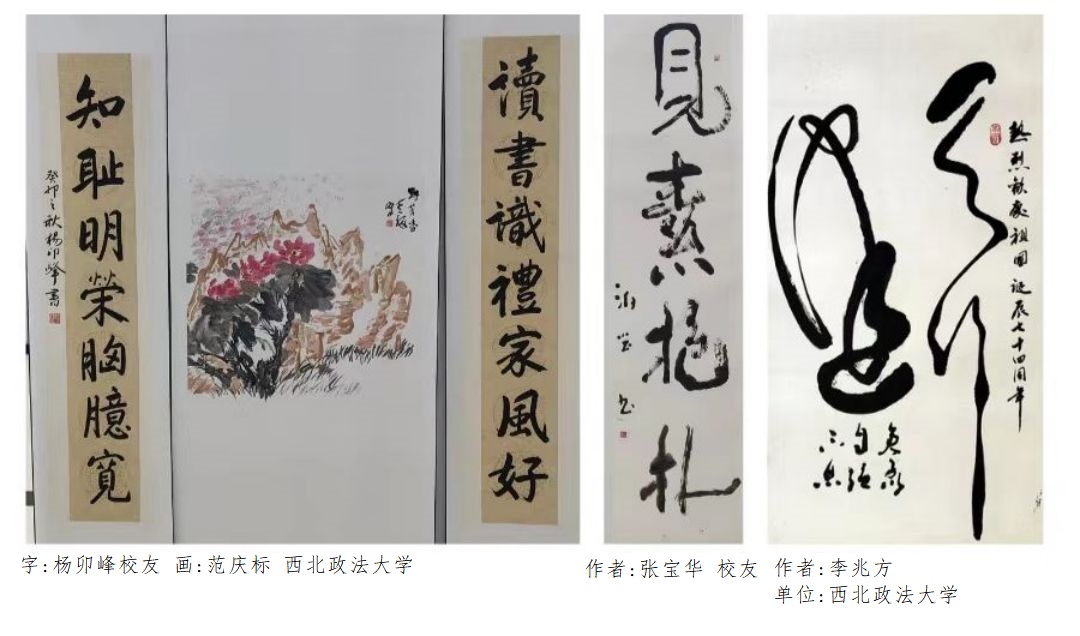 讀書識禮家風好
知耻明榮胸臆寬
癸卯之秋楊卯峰書
見素抱朴
熱烈歡慶祖國誕辰七十四周年
天行
健
自强
不息
字:杨卯峰校友 画:范庆标 西北政法大学
作者:张宝华 校友
作者:李兆方
单位:西北政法大学